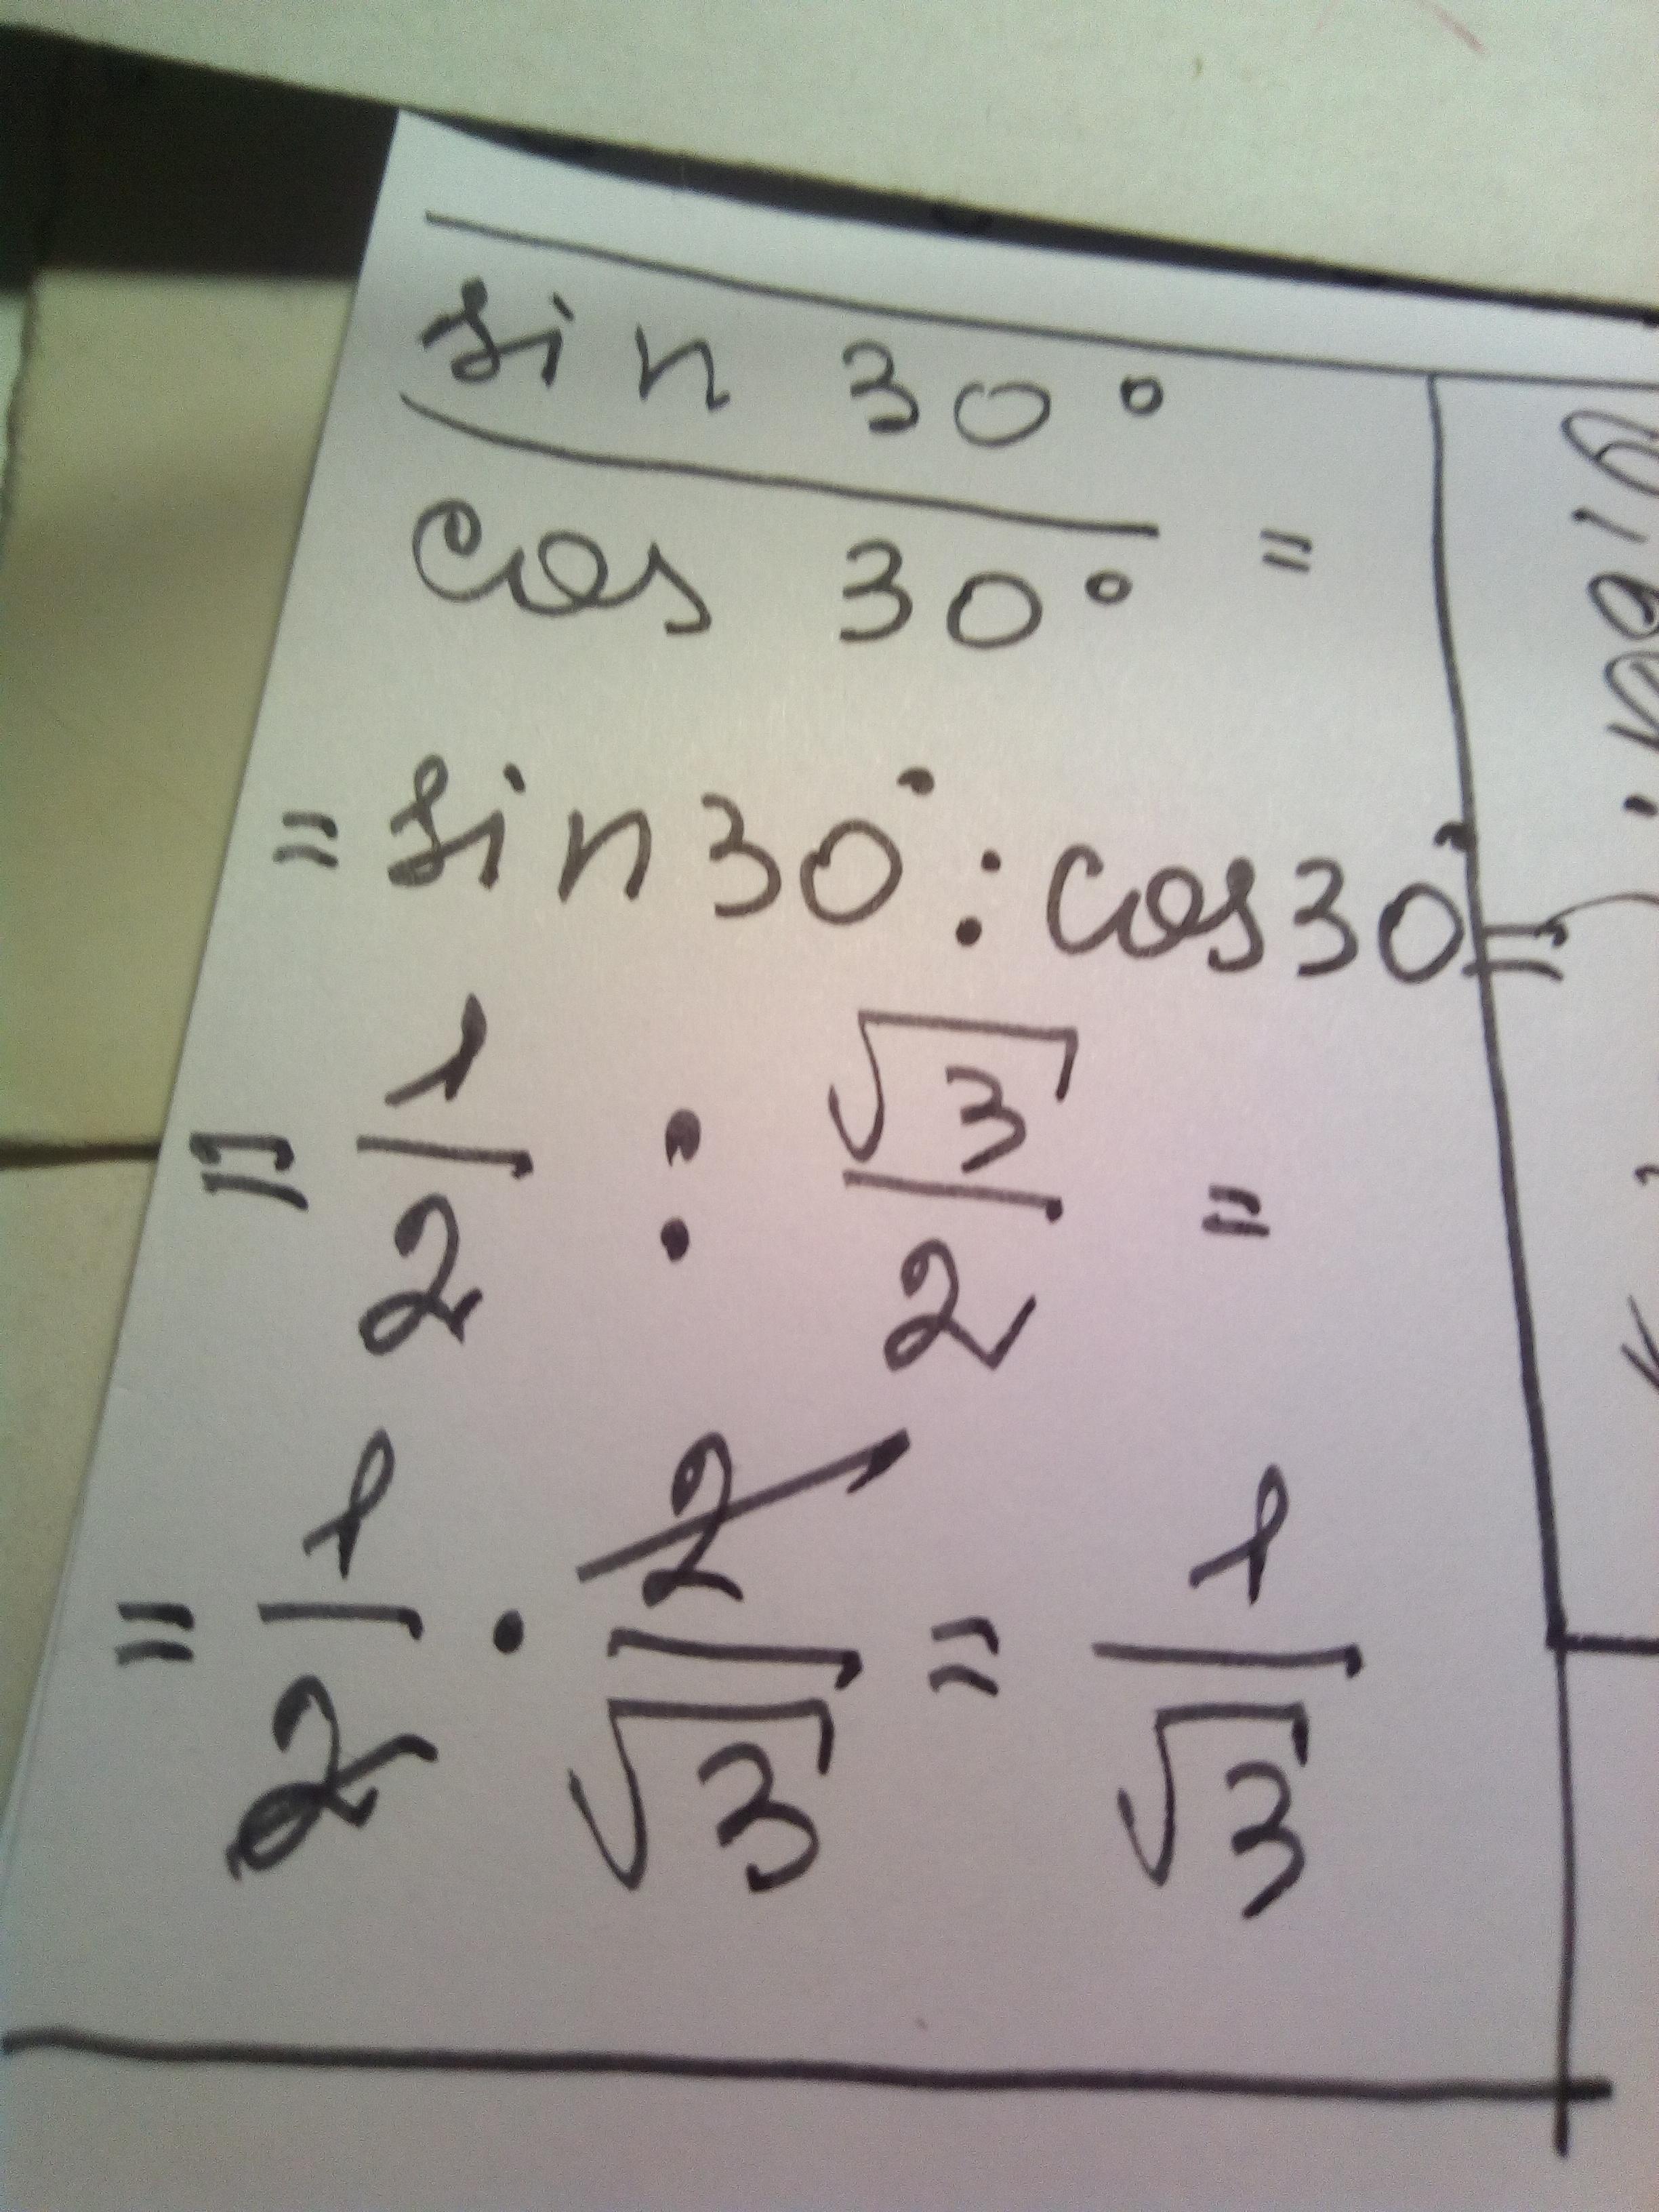 sin 30° / cos 30° =
= sin 30° : cos 30° =
= 1/2 : √3/2 =
= 1/2 · 2/√3 = 1/√3